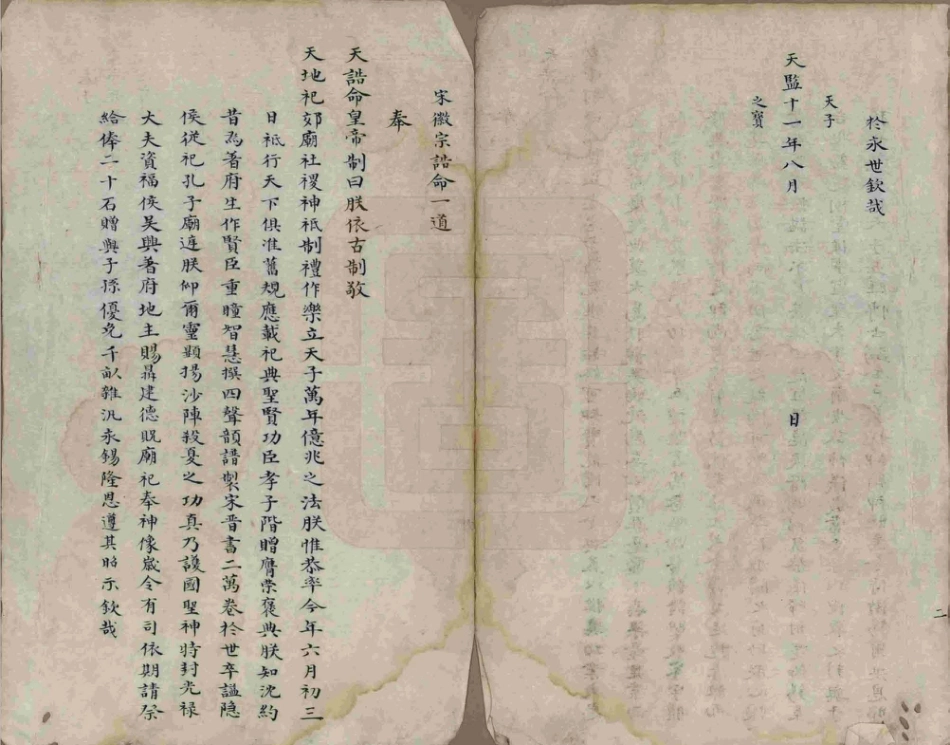 於永世欽哉
天子
天監十一年八月　日
之寶
二
宋徽宗誥命一道
奉
天誥命皇帝制曰朕依古制敬
天地祀郊廟社稷神祇制禮作樂立天子萬年億兆之法朕惟恭率今年六月初三
日祗行天下俱准舊規應載祀典聖賢功臣孝子階贈膺崇褒典朕知沈約
昔為著府生作賢臣重瞳智慧撰四聲韻譜製宋晋書二萬卷於世卒謚隐
侯從祀孔子廟廷朕仰爾靈顕揚沙陣救戛之功真乃護國聖神特封光禄
大夫資福侯吴興著府地主賜昇建德貺廟祀奉神像歲令有司依期請祭
給俸二十石贈與子孫優免千畝雜汎永錫隆恩遵其昭示欽哉